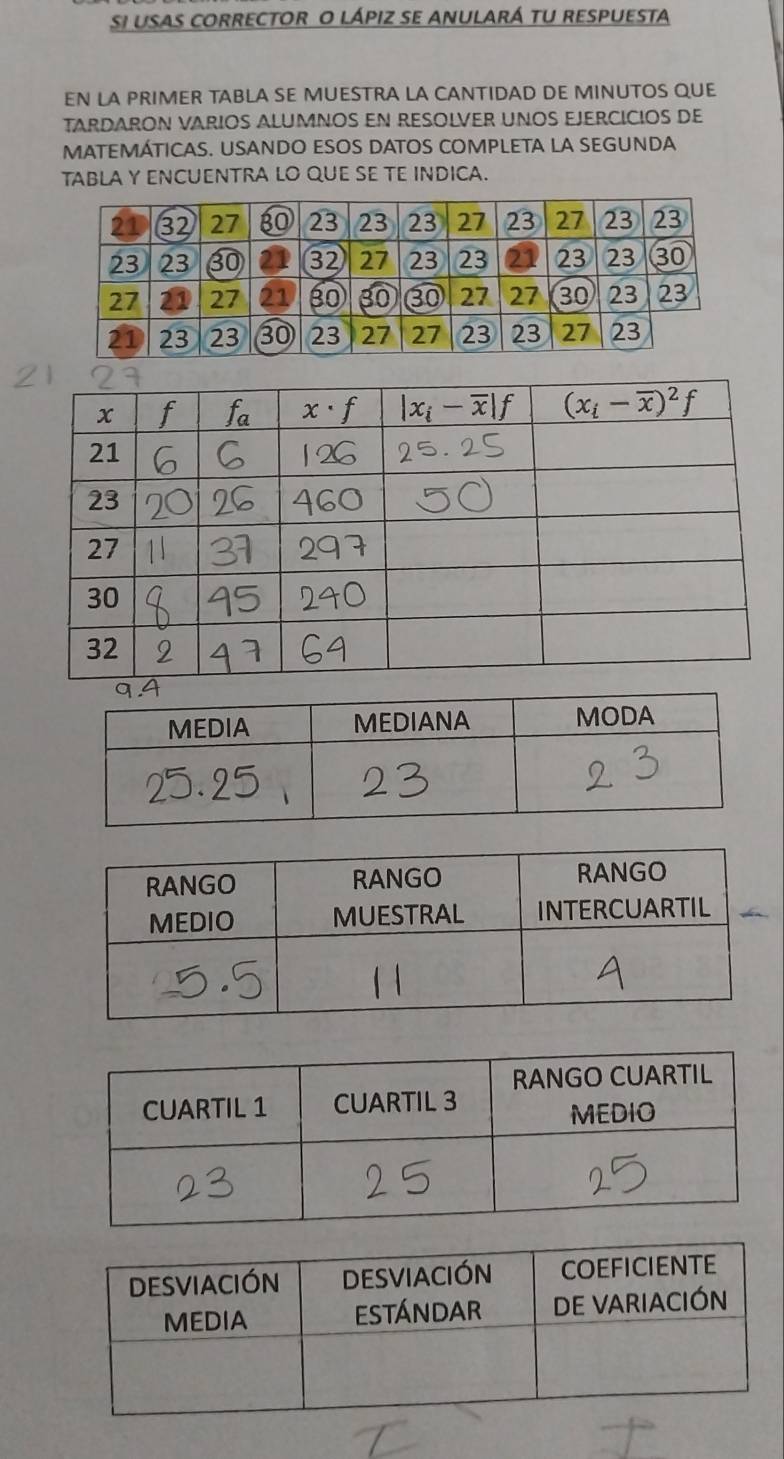 SI USAS CORRECTOR O LÁPIZ SE ANULARÁ TU RESPUESTA
EN LA PRIMER TABLA SE MUESTRA LA CANTIDAD DE MINUTOS QUE
TARDARON VARIOS ALUMNOS EN RESOLVER UNOS EJERCICIOS DE
MATEMÁTICAS. USANDO ESOS DATOS COMPLETA LA SEGUNDA
TABLA Y ENCUENTRA LO QUE SE TE INDICA.
21 32 27 30 23 23 23 27 23 27 23 23
23 23 30 21 32 27 23 23 21 23 23 30
27 21 27 21 30 30 30 27 27 30 23 23
21 23 23 30 23 27 27 23 23 27 23
21 27
x f fₐ x · f |xᵢ − x̅|f (xᵢ − x̅)²f
21 6 6 126 25.25
23 20 26 460 50
27 11 37 297
30 8 45 240
32 2 47 64
9.4
MEDIA MEDIANA MODA
25.25 23 23
RANGO MEDIO RANGO MUESTRAL RANGO INTERCUARTIL
5.5 11 4
CUARTIL 1 CUARTIL 3 RANGO CUARTIL MEDIO
23 25 25
DESVIACIÓN MEDIA DESVIACIÓN ESTÁNDAR COEFICIENTE DE VARIACIÓN